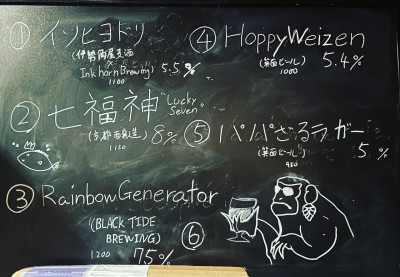 ① イソヒヨドリ
(伊勢角屋麦酒
Inkhorn Brewing) 5.5%
1100
② 七福神 "Lucky
Seven"
(京都西陣麦酒) 8%
1150
③ RainbowGenerator
(BLACK TIDE
BREWING)
1200 7.5%
④ HoppyWeizen
(箕面ビール) 5.4%
1000
⑤ パパざるラガー
(箕面ビール) 5%
950
⑥